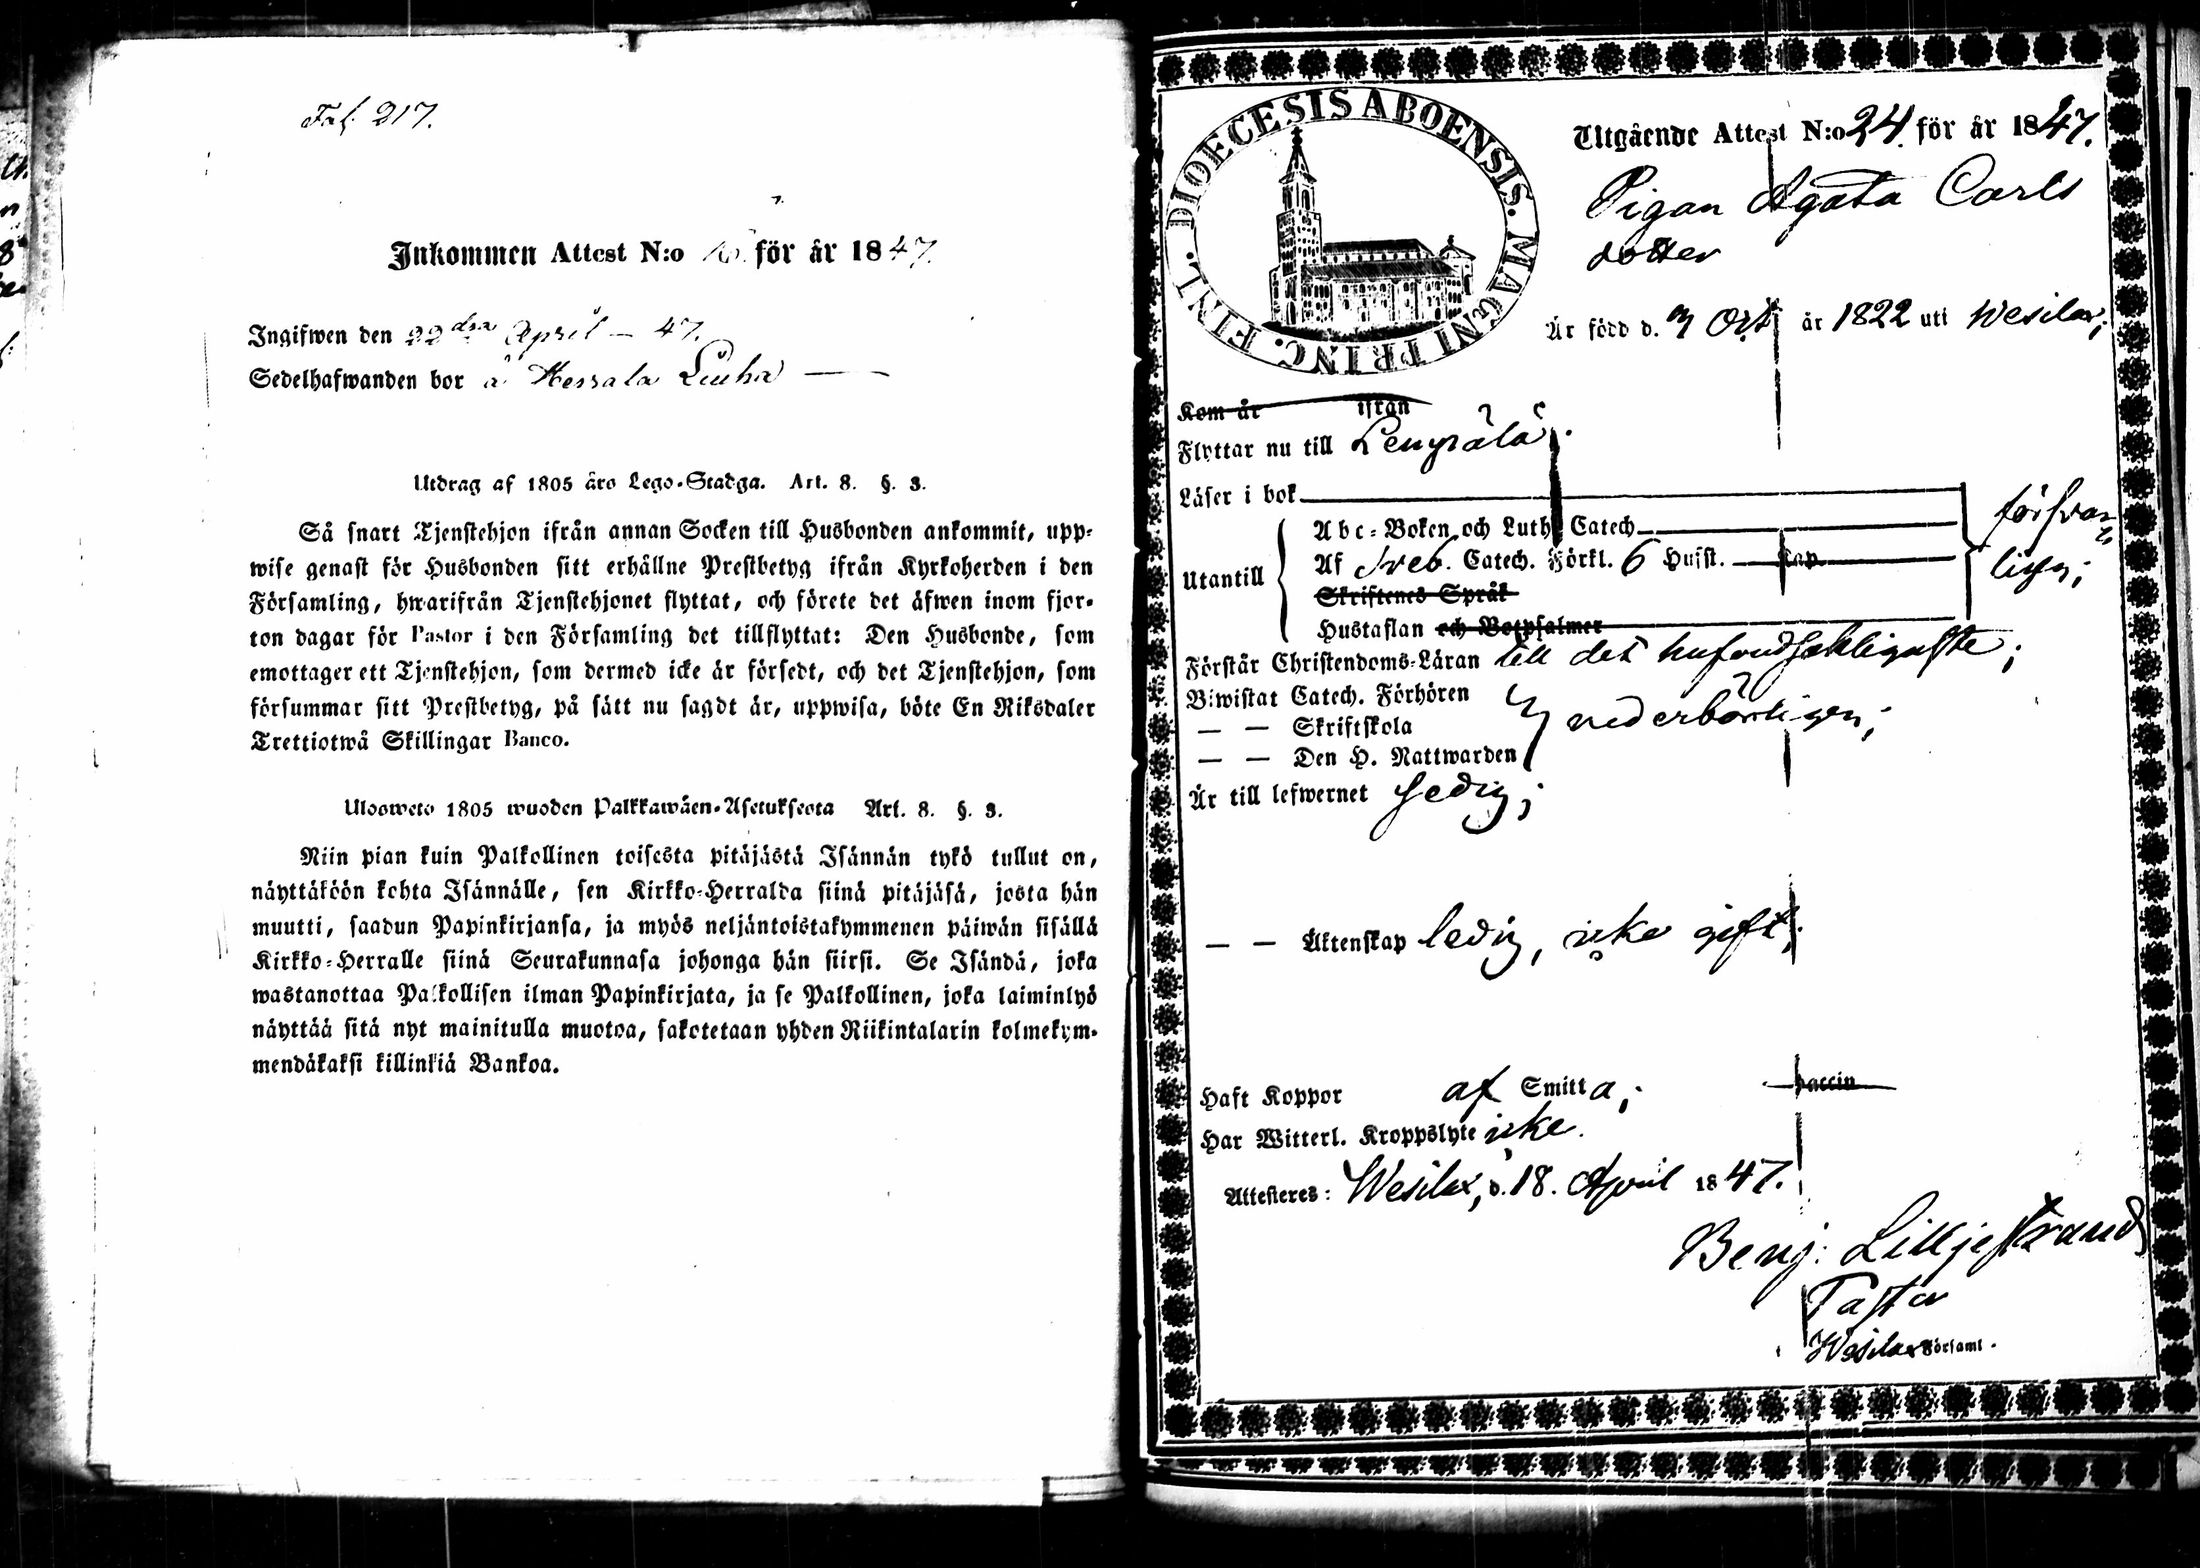 Fol. 217.
Inkommen Attest N:o för år 1847.
Ingifwen den 22dra April – 47.
Sedelhafwanden bor å Hessala Liuha —
Utdrag af 1805 års Lego-Stadga. Art. 8. §. 3.
Så snart Tjenstehjon ifrån annan Socken till Husbonden ankommit, upp-
wise genast för Husbonden sitt erhållne Prestbetyg ifrån Kyrkoherden i den
Församling, hwarifrån Tjenstehjonet flyttat, och förete det äfwen inom fjor-
ton dagar för Pastor i den Församling det tillflyttat: Den Husbonde, som
emottager ett Tjenstehjon, som dermed icke är försedt, och det Tjenstehjon, som
försummar sitt Prestbetyg, på sätt nu sagdt är, uppwisa, böte En Riksdaler
Trettiotwå Skillingar Banco.
Ulosweto 1805 wuoden Palkkawäen-Asetuksesta Art. 8. §. 3.
Niin pian kuin Palkollinen toisesta pitäjästä Isännän tykö tullut on,
näyttäköön kohta Isännälle, sen Kirkko-Herralda siinä pitäjäsä, josta hän
muutti, saadun Papinkirjansa, ja myös neljäntoistakymmenen päiwän sisällä
Kirkko-Herralle siinä Seurakunnasa johonga hän siirsi. Se Isändä, joka
wastanottaa Palkollisen ilman Papinkirjata, ja se Palkollinen, joka laiminlyö
näyttää sitä nyt mainitulla muotoa, sakotetaan yhden Riikintalarin kolmekym-
mendäkaksi killinkiä Bankoa.
DIOECESIS ABOENSIS. MAGNI PRINC. FINL.
Utgående Attest N:o 24. för år 1847.
Pigan Agata Carls
dotter
Är född d. 7 Oct år 1822 uti Wesilax;
Kom år ifrån
Flyttar nu till Lempäälä.
Läser i bok
Abc-Boken och Luth. Catech.
försvar
ligen;
Utantill
Af Sveb. Catech. Förkl. 6 Hufst. Kap.
Skriftenes Språk
Hustaflan och Botpsalmer
Förstår Christendoms-Läran till det hufvudsakligaste;
Biwistat Catech. Förhören
— — Skriftskola
vederbörligen;
— — Den H. Nattwarden
Är till lefwernet sedig;
— — Äktenskap ledig, icke gift;
Haft Koppor af Smitta; vaccin
Har Witterl. Kroppslyte icke.
Attesteres: Wesilax, d. 18. April 1847.
Benj: Lilljestrand
Pastor
Wesilax Församl.